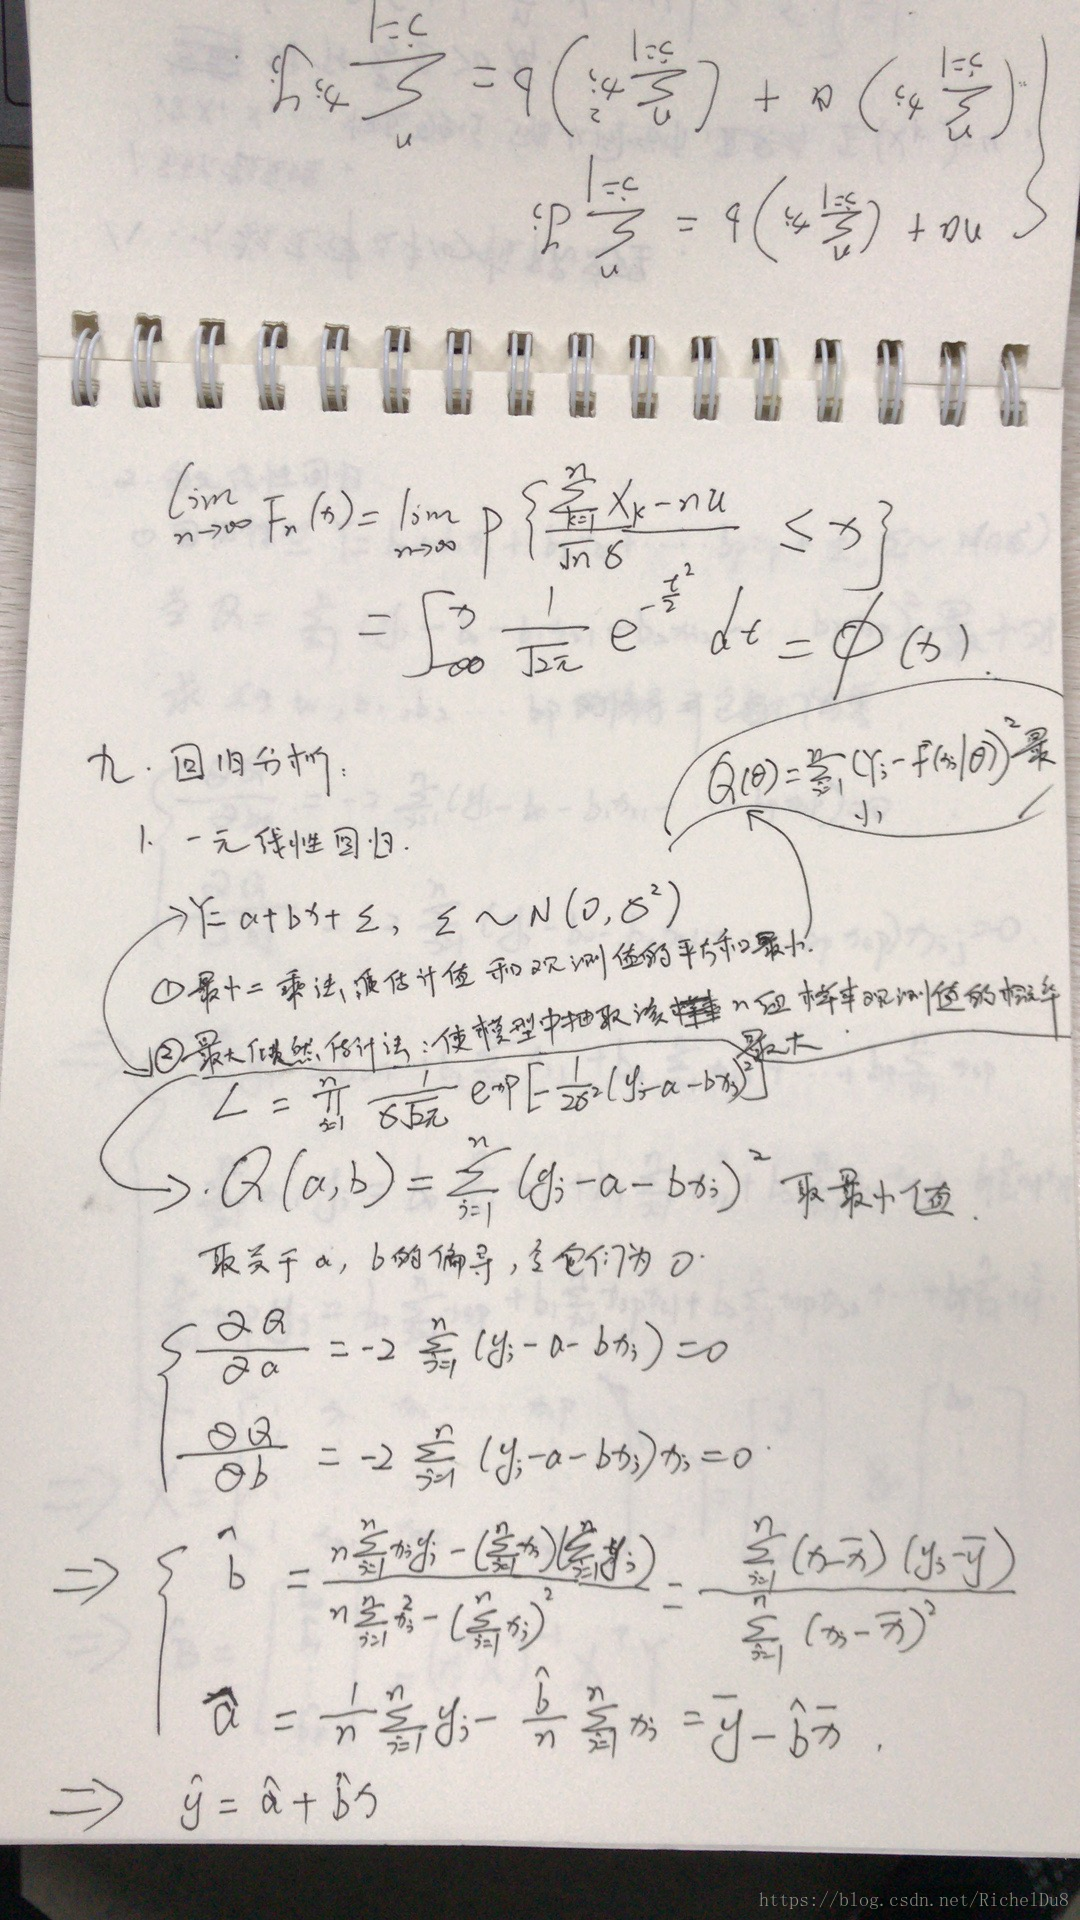 na + (∑_{i=1}^{n} x_i) b = ∑_{i=1}^{n} y_i
(∑_{i=1}^{n} x_i) a + (∑_{i=1}^{n} x_i^2) b = ∑_{i=1}^{n} x_i y_i
lim_{n→∞} F_n(x) = lim_{n→∞} P{ (∑_{k=1}^{n} X_k - nu) / (√n σ) ≤ x }
= ∫_{-∞}^{x} 1/√2π e^{-t^2/2} dt = Φ(x).
九. 回归分析:
Q(θ) = ∑_{i=1}^{n} (Y_i - F(x_i|θ))^2 最
小
1. 一元线性回归.
Y = a+bx+ε, ε ~ N(0, σ^2)
① 最小二乘法, 使估计值和观测值的平方和最小.
② 最大似然估计法: 使模型中抽取该 n组样本观测值的概率
最大
L = ∏_{i=1}^{n} 1/(σ√2π) exp[-1/(2σ^2) (y_i-a-bx_i)^2]
Q(a,b) = ∑_{i=1}^{n} (y_i-a-bx_i)^2 取最小值.
取关于a, b的偏导, 令它们为0.
∂Q/∂a = -2 ∑_{i=1}^{n} (y_i-a-bx_i) = 0
∂Q/∂b = -2 ∑_{i=1}^{n} (y_i-a-bx_i)x_i = 0
⇒ { b̂ = (n∑_{i=1}^{n} x_i y_i - (∑_{i=1}^{n} x_i)(∑_{i=1}^{n} y_i)) / (n∑_{i=1}^{n} x_i^2 - (∑_{i=1}^{n} x_i)^2) = ∑_{i=1}^{n} (x-x̄)(y_i-ȳ) / ∑_{i=1}^{n} (x_i-x̄)^2
â = 1/n ∑_{i=1}^{n} y_i - b̂/n ∑_{i=1}^{n} x_i = ȳ - b̂x̄.
⇒ ŷ = â + b̂x
https://blog.csdn.net/RichelDu8